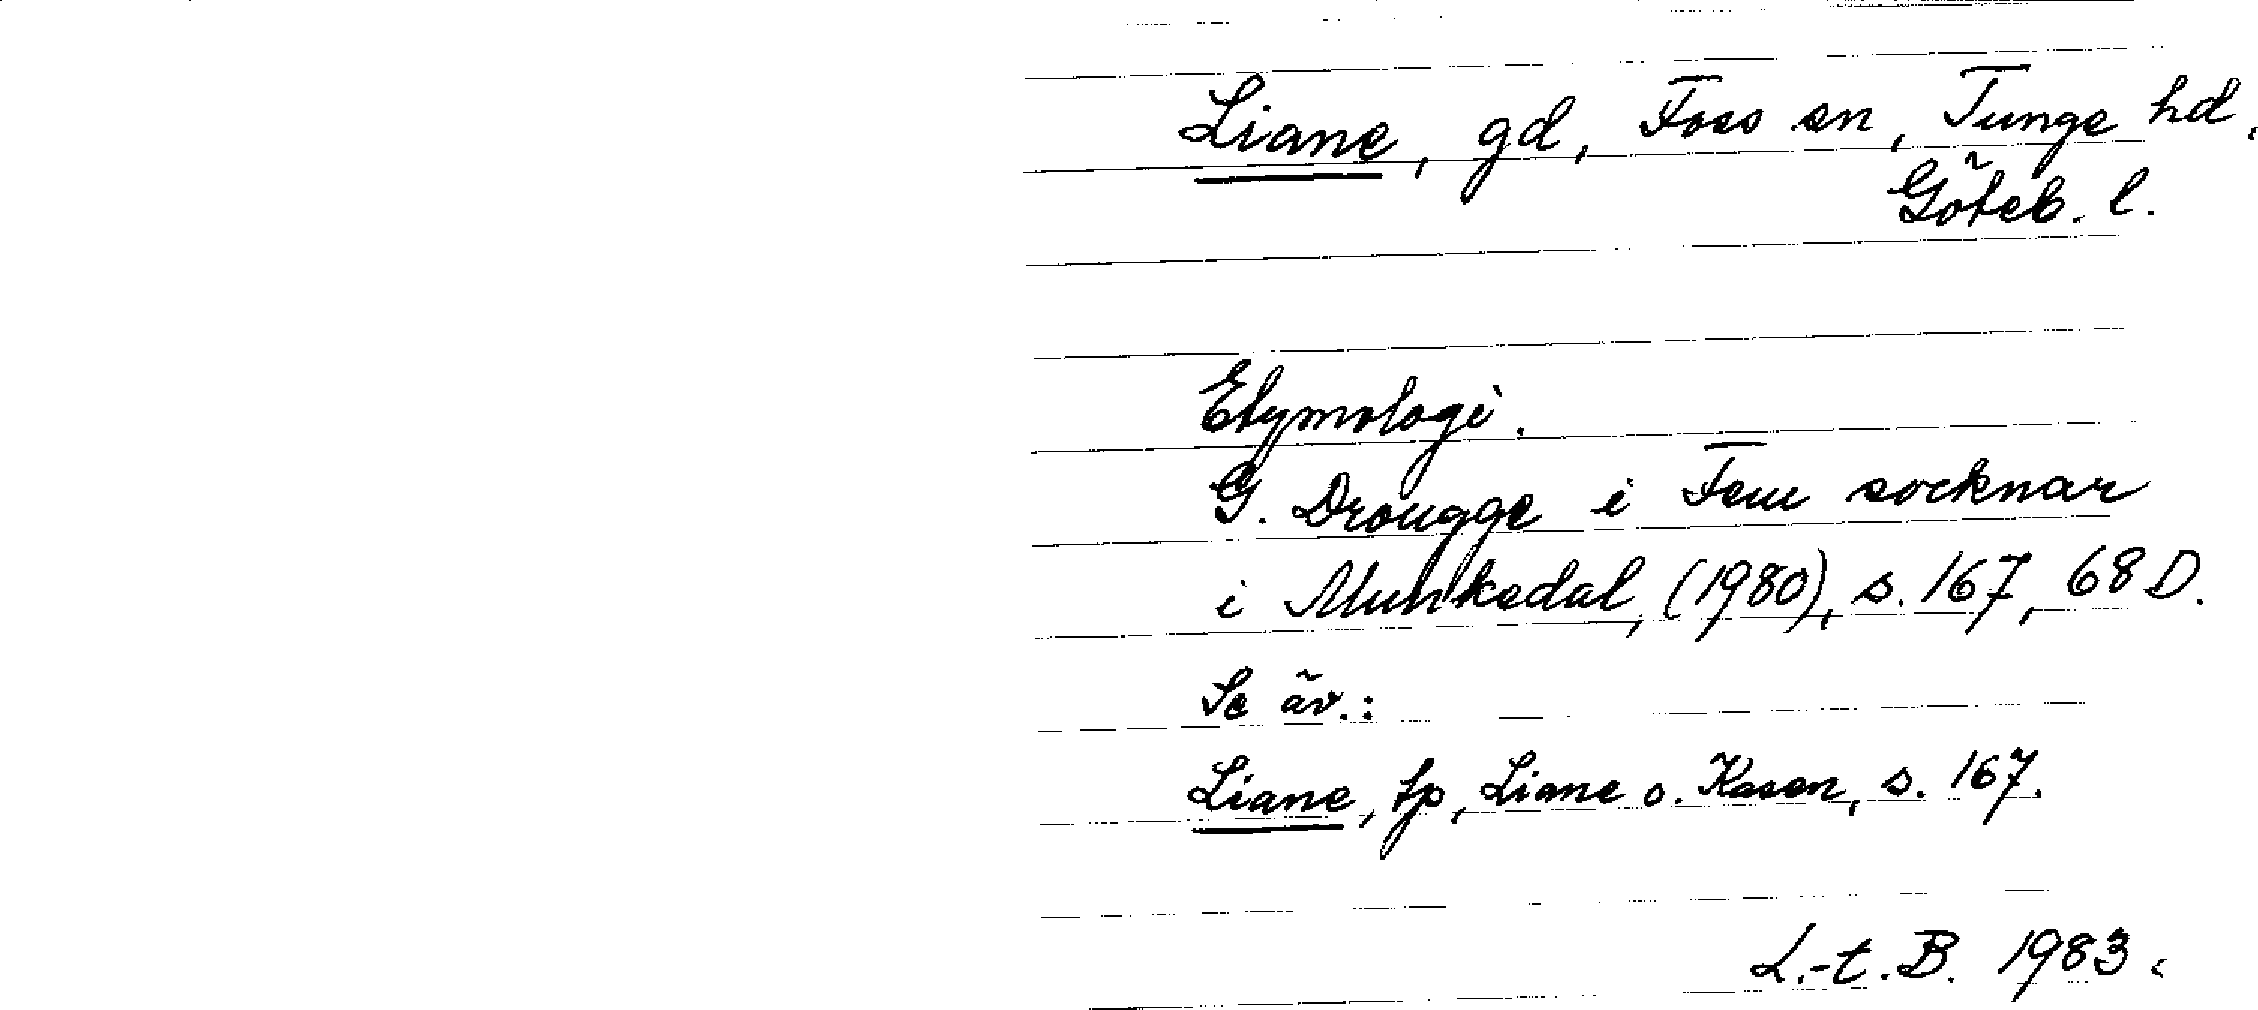 Liane, gd, Foss sn, Tunge hd,
Göteb. l.
Etymologi.
G. Drougge i Fem socknar
i Munkedal, (1980), s. 167, 68 D.
Se äv.:
Liane, tp, Liane o. Kasen, s. 167.
L.-t. B. 1983.